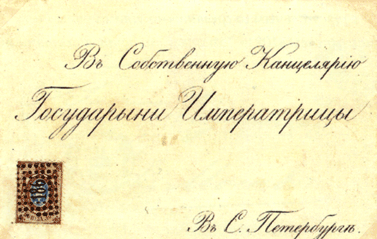 Въ Собственную Канцелярію
Государыни Императрицы
Въ С. Петербургѣ.